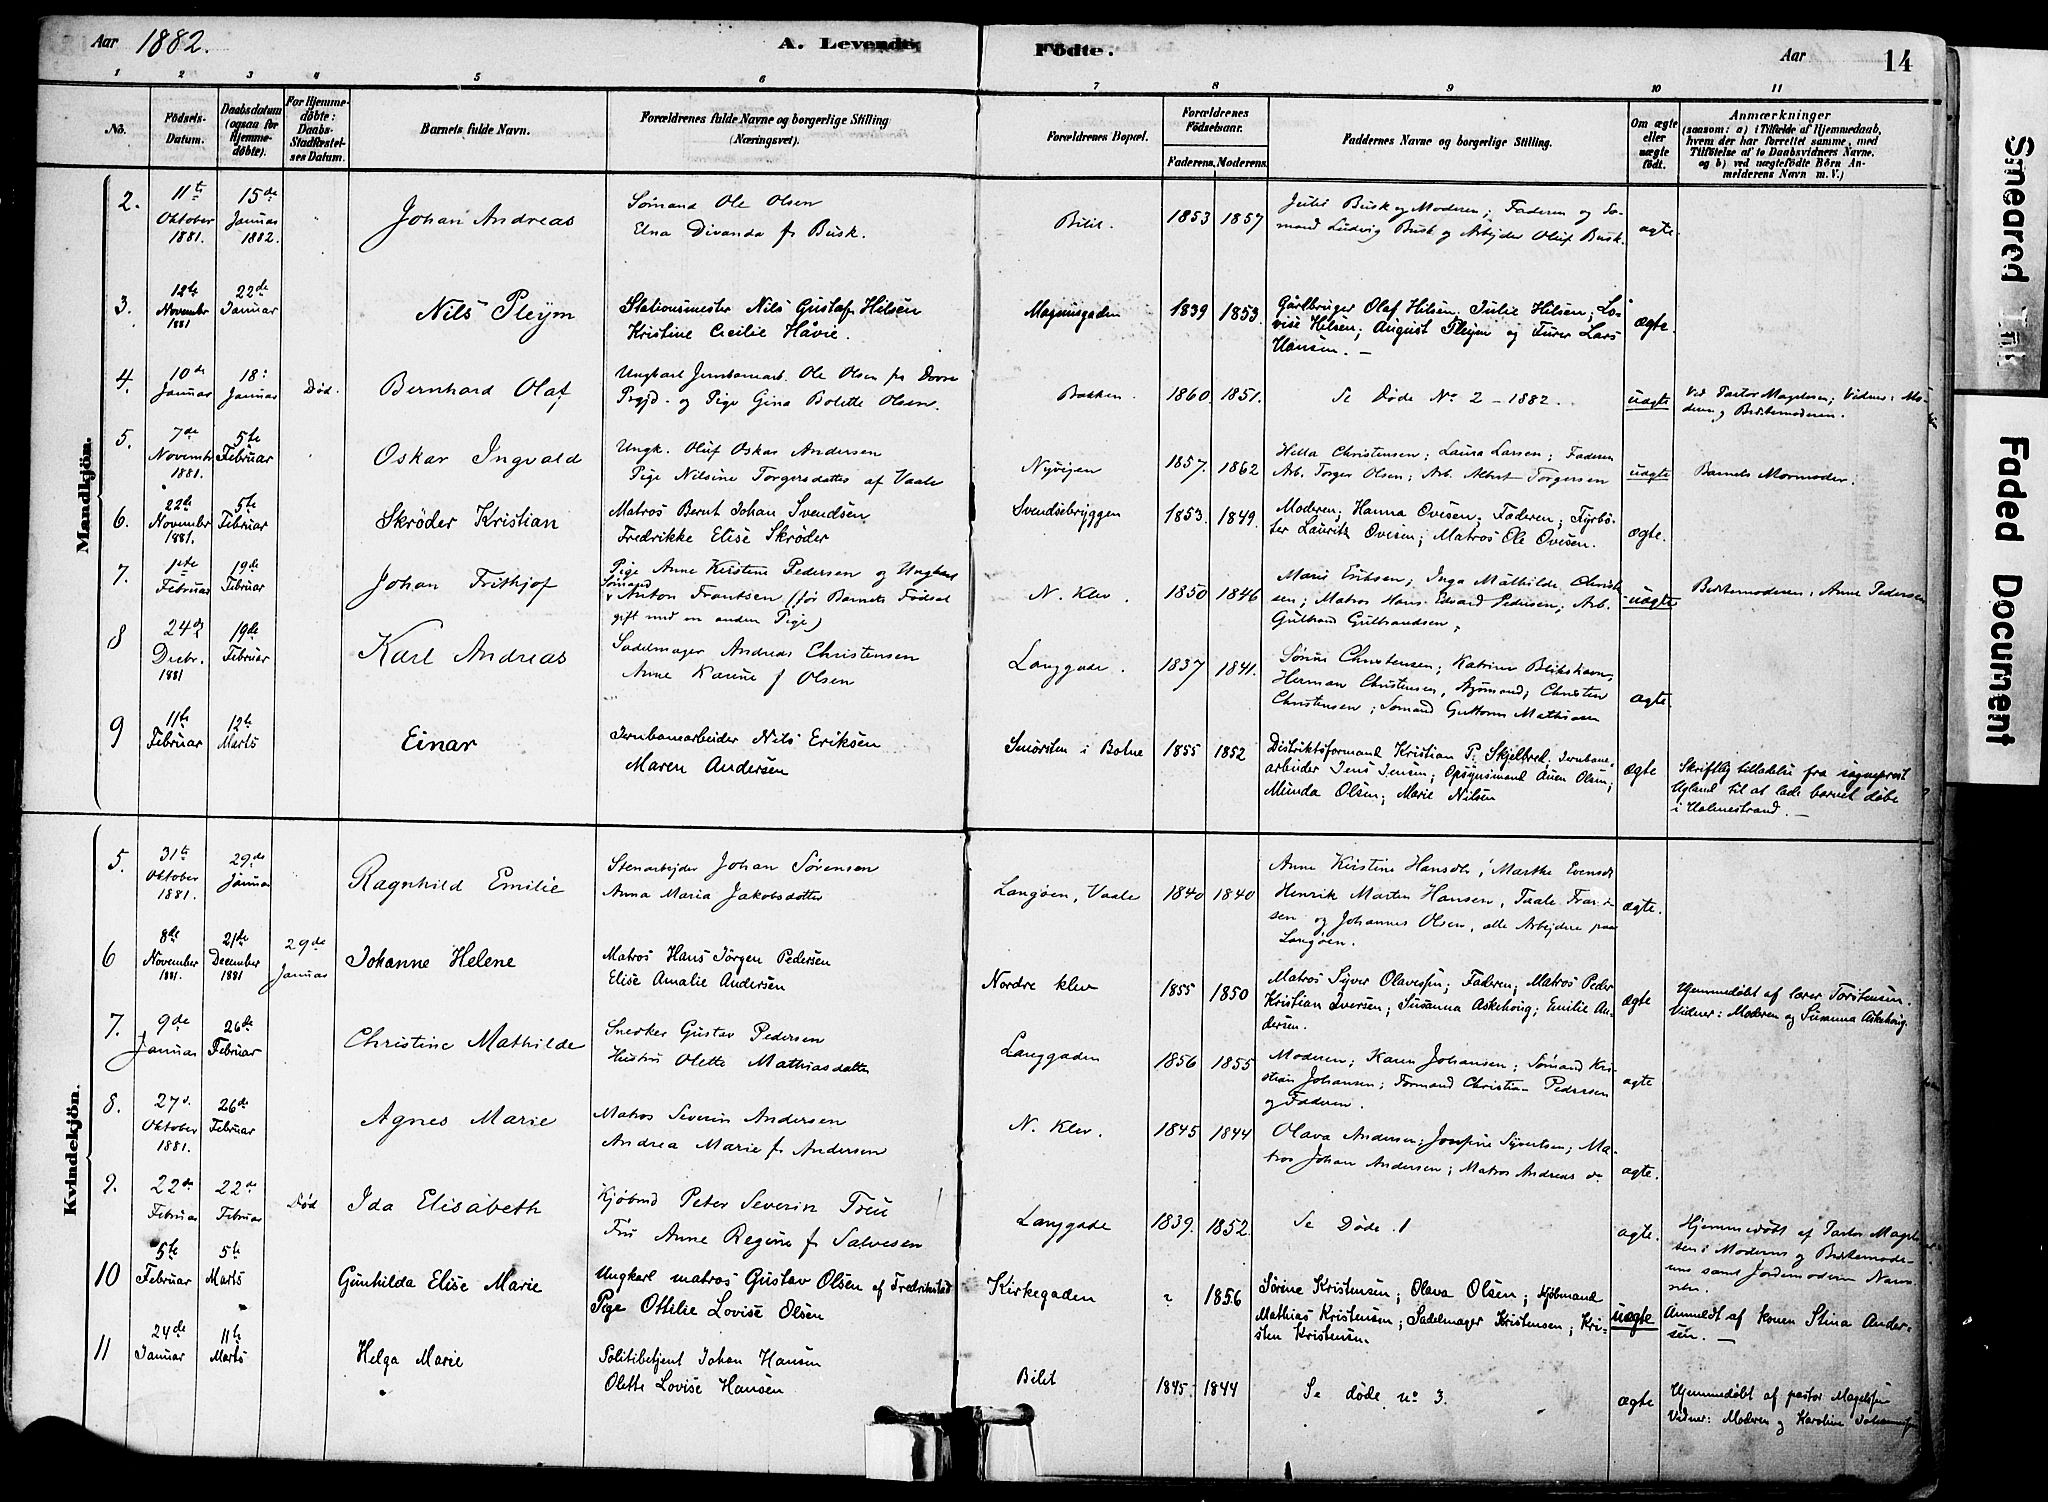 Aar 1882.
A. Levende Födte.
Aar
14
1 2 3 4 5 6 7 8 9 10 11
No.
Födsels-Datum.
Daabsdatum (ogsaa for Hjemme-døbte).
For Hjemme-døbte: Daabs-Stadfæstel-ses Datum.
Barnets fulde Navn.
Forældrenes fulde Navne og borgerlige Stilling (Næringsvei).
Forældrenes Bopæl.
Forældrenes Födselsaar.
Faderens. Moderens.
Faddernes Navne og borgerlige Stilling.
Om ægte eller uægte født.
Anmærkninger
(saasom: a) i Tilfælde af Hjemmedaab,
hvem der har forrettet samme, med
Tilföielse af to Daabsvidners Navne,
og b) ved uægtefödte Börn An-
melderens Navn m. V.)
Mandkjön.
2. 11te Oktober 1881. 15de Januar 1882. Johan Andreas
Sømand Ole Olsen
Elna Divanda f. Busk.
Bilit. 1853 1857
Julie Busk og Moderen; Faderen og Sø-
mand Ludvig Busk og Arbejder Oluf Busk.
ægte.
3. 12te November 1881 22de Januar Nils Pleym
Stationsmester Nils Gustaf Hilsen
Kristine Cecilie Håvie.
Magnusgaden 1839 1853.
Gårdbruger Olaf Hilsen; Julie Hilsen; Lo-
vise Hilsen; August Pleym og Furer Lars
Hansen. —
ægte.
4. 10de Januar 18: Januar Død. Bernhard Olaf
Ungkarl Jernbanearb. Ole Olsen fra Dovre
Prgjd. og Pige Gina Bolette Olsen.
Bakken. 1860. 1851.
Se Døde No 2 - 1882.
uægte
Ved Pastor Magelssen; Vidner: Mo-
deren og Besstemoderen.
5. 7de Novembr 1881. 5te Februar Oskar Ingvald
Ungk. Oluf Oskar Andersen
Pige Nilsine Torgersdatter af Vaale
Nyvejen 1857. 1862
Hella Christensen; Laura Larsen; Faderen
Arb. Torger Olsen; Arb. Albert Torgersen
uægte
Barnets Mormoder.
6. 22de November 1881 5te Februar Skrøder Kristian
Matros Bernt Johan Svendsen
Fredrikke Elise Skrøder
Svendsebryggen 1853. 1849.
Moderen; Hanna Ovesen; Faderen; Fyrbø-
ter Lauritz Ovesen; Matros Ole Ovesen.
ægte.
7. 1ste Februar 19de Februar Johan Frithjof
Pige Anne Kirstine Pedersen og Ungkarl
Sømand Anton Frantsen (før Barnets Fødsel
gift med en anden Pige)
N. Klev. 1850 1846
Marie Eriksen; Inga Mathilde Christen-
sen; Matros Hans Edvard Pedersen; Arb.
Gulbrand Gulbrandsen;
uægte
Besstemoderen, Anne Pedersen
8 24de Decbr. 1881 19de Februar Karl Andreas
Sadelmager Andreas Christensen
Anne Karine f Olsen
Langgade. 1837 1841.
Sørine Christensen; Katrine
Herman Christensen, Sjømand; Christen
Christensen; Sømand Guttorm Mathisen
ægte.
9 11te Februar 12te Marts Einar
Jernbanearbeider Nils Eriksen
Maren Andersen
Smørsten i Botne 1855 1852
Distriktsformand Kristian P. Skjelbred; Jernbane-
arbeider Jens Jensen; Opsynsmand Auen Olsen;
Munda Olsen; Marie Nilsen
ægte
Skriftlig tilladelse fra sogneprest
Ugland til at lade barnet døbe
i Holmestrand. —
Kvindekjön.
5. 31te Oktober 1881. 29de Januar Ragnhild Emilie
Stenarbejder Johan Sørensen
Anna Maria Jakobsdatter
Langøen, Vaale 1840 1840
Anne Kirstine Hansdtr; Marthe Evensdtr
Henrik Marten Hansen, Taale Frand-
sen og Johannes Olsen, alle Arbejdere paa
Langøen.
ægte.
6 8de November 1881. 21de December 1881 29de Januar Johanne Helene
Matros Hans Jørgen Pedersen
Elise Amalie Andersen
Nordre klev 1855 1850
Matros Syver Olavessen; Faderen; Matros Peder
Kristian Iversen; Susanna Askehoug; Emilie An-
dersen.
ægte
Hjemmedøbt af lærer Torstensen.
Vidner: Moderen og Susanna Askehoug.
7. 9de Januar 26de Februar Christine Mathilde
Snedker Gustav Pedersen
Hustru Olette Mathiasdatter
Langgaden 1856 1855
Moderen; Karen Johansen; Sømand Kri-
stian Johansen; Formand Christian Pedersen
og Faderen.
ægte
8. 27d. Oktober 1881. 26de Februar Agnes Marie
Matros Severin Andersen
Andrea Marie f. Andersen
N. Klev. 1845 1844
Olava Andersen; Josefine Syvertsen; Ma-
tros Johan Andersen; Matros Andreas do
ægte.
9. 22de Februar 22de Februar Død Ida Elisabeth
Kjøbmd Peter Severin Treu
Fru Anne Regine f. Salvesen
Langgade 1839. 1852.
Se Døde 1
ægte.
Hjemmedøbt af Pastor Magels-
sen; Moderens og Besstemode-
rens samt Jordemoderen
10 5te Februar 5te Marts Gunhilda Elise Marie
Ungkarl matros Gustav Olsen af Fredrikstad
Pige Ottilie Lovise Olsen
Kirkegaden ? 1856
Sørine Kristensen; Olava Olsen; Kjøbmand
Mathias Kristensen; Sadelmager Kristensen; Kri-
sten Kristensen.
uægte
Anmeldt af konen Stina Ander-
sen. —
11 24de Januar 11te Marts Helga Marie
Politibetjent Johan Hansen
Olette Lovise Hansen
Bilet 1845. 1844
Se døde no 3.
ægte
Hjemmedøbt af pastor Magelssen
Vidner: Moderen og Karoline Johannessen
Smeared Ink
Faded Document